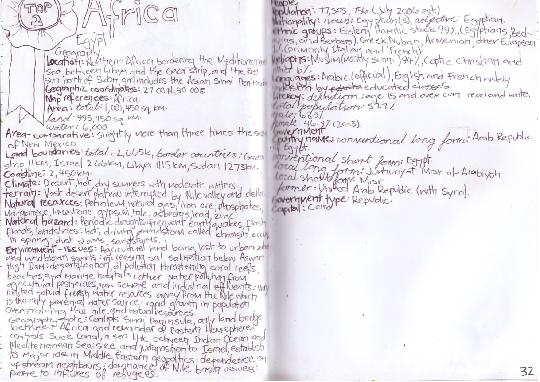 TOP
2
Africa
Egypt
Geography
Location: Northern Africa bordering the Mediterranean
Sea between Libya and the Gaza strip, and the Red
Sea north of Sudan and includes the Asian Sinai Peninsula
Geographic coordinates: 27 00 N, 30 00 E
Map references: Africa
Area: total: 1,001,450 sq. km
land: 995,450 sq km
water: 6,000
Area-comparative: Slightly more than three times the size
of New Mexico
Land boundaries: total: 2,665k, border countries: Gaza
strip 11km, Israel 266km, Libya 1115km, Sudan 1273km.
Coastline: 2,450km
Climate: Desert, hot, dry summers with moderate winters
Terrain: Vast desert plateau interrupted by Nile valley and delta
Natural resources: Petroleum, natural gas, iron ore, phosphates,
manganese, limestone, gypsum, talc, asbestos, lead, zinc
Natural hazard: Periodic droughts, frequent earthquakes, flash
floods, landslides, hot, driving windstorm called khamsin occurs
in spring, dust storms, sandstorms.
Environment-issues: Agricultural land being lost to urbanization
and windblown sands; increasing soil salination below Aswan
High Dam; desertification; oil pollution threatening coral reefs,
beaches, and marine habitats; other water pollution from
agricultural pesticides, raw sewage and industrial effluents; very
limited natural fresh water resources away from the Nile which
is the only perennial water source; rapid growth in population
overstraining the nile and natural resources.
Geography-note: Controls Sinai Peninsula, only land bridge
between Africa and remainder of Eastern Hemisphere;
controls Suez Canal, a sea link between Indian Ocean and
Mediterranean Sea; size and juxtaposition to Israel, establish
its major role in Middle Eastern geopolitics; dependence on
upstream neighbours; dominance of Nile basin issues;
prone to influxes of refugees.
People
Population: 77,505,756 (July 2006 est)
Nationality: noun: Egyptian(s), adjective: Egyptian
Ethnic groups: Eastern Hamitic stock 99% (Egyptians, Bedouins,
and Berbers), Greek, Nubian, Armenian, other European
(primarily Italian and French)
Religions: Muslim (mostly Sunni) 94%, Coptic Christian and
other 6%
Languages: Arabic (official), English and French widely
understood by educated classes
Literacy: definition: age 15 and over can read and write.
total population: 57.7%
male: 68.3%
female: 46.9% (2003).
Government
Country name: conventional long form: Arab Republic
of Egypt.
conventional short form: Egypt
local long form: Jumhuriyat Misr al-Arabiyah
local short form: Misr
former: United Arab Republic (with Syria).
Government type: Republic
Capital: Cairo
32